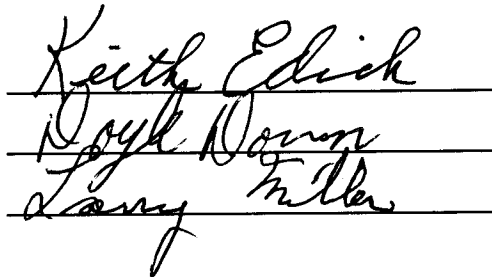 Keith Edick
Doyle Down
Larry Miller